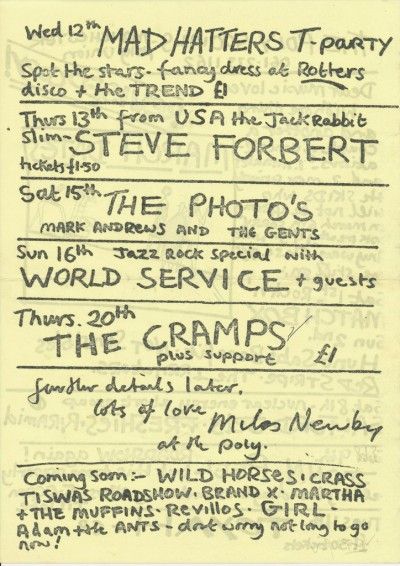 Wed 12th MAD HATTERS T PARTY
Spot the stars - fancy dress at Rotters
disco + the TREND £1
Thurs 13th from USA the Jack Rabbit
Slim - STEVE FORBERT
tickets £1.50
Sat 15th THE PHOTO'S
MARK ANDREWS AND THE GENTS
Sun 16th Jazz Rock Special with
WORLD SERVICE + guests
Thurs. 20th
THE CRAMPS
plus support £1
further details later.
lots of love Miles Newby
at the Poly.
Coming soon:- WILD HORSES · CRASS
TISWAS ROADSHOW · BRAND X · MARTHA
+ THE MUFFINS · Revillos · GIRL -
Adam + the ANTS - dont worry not long to go
now!